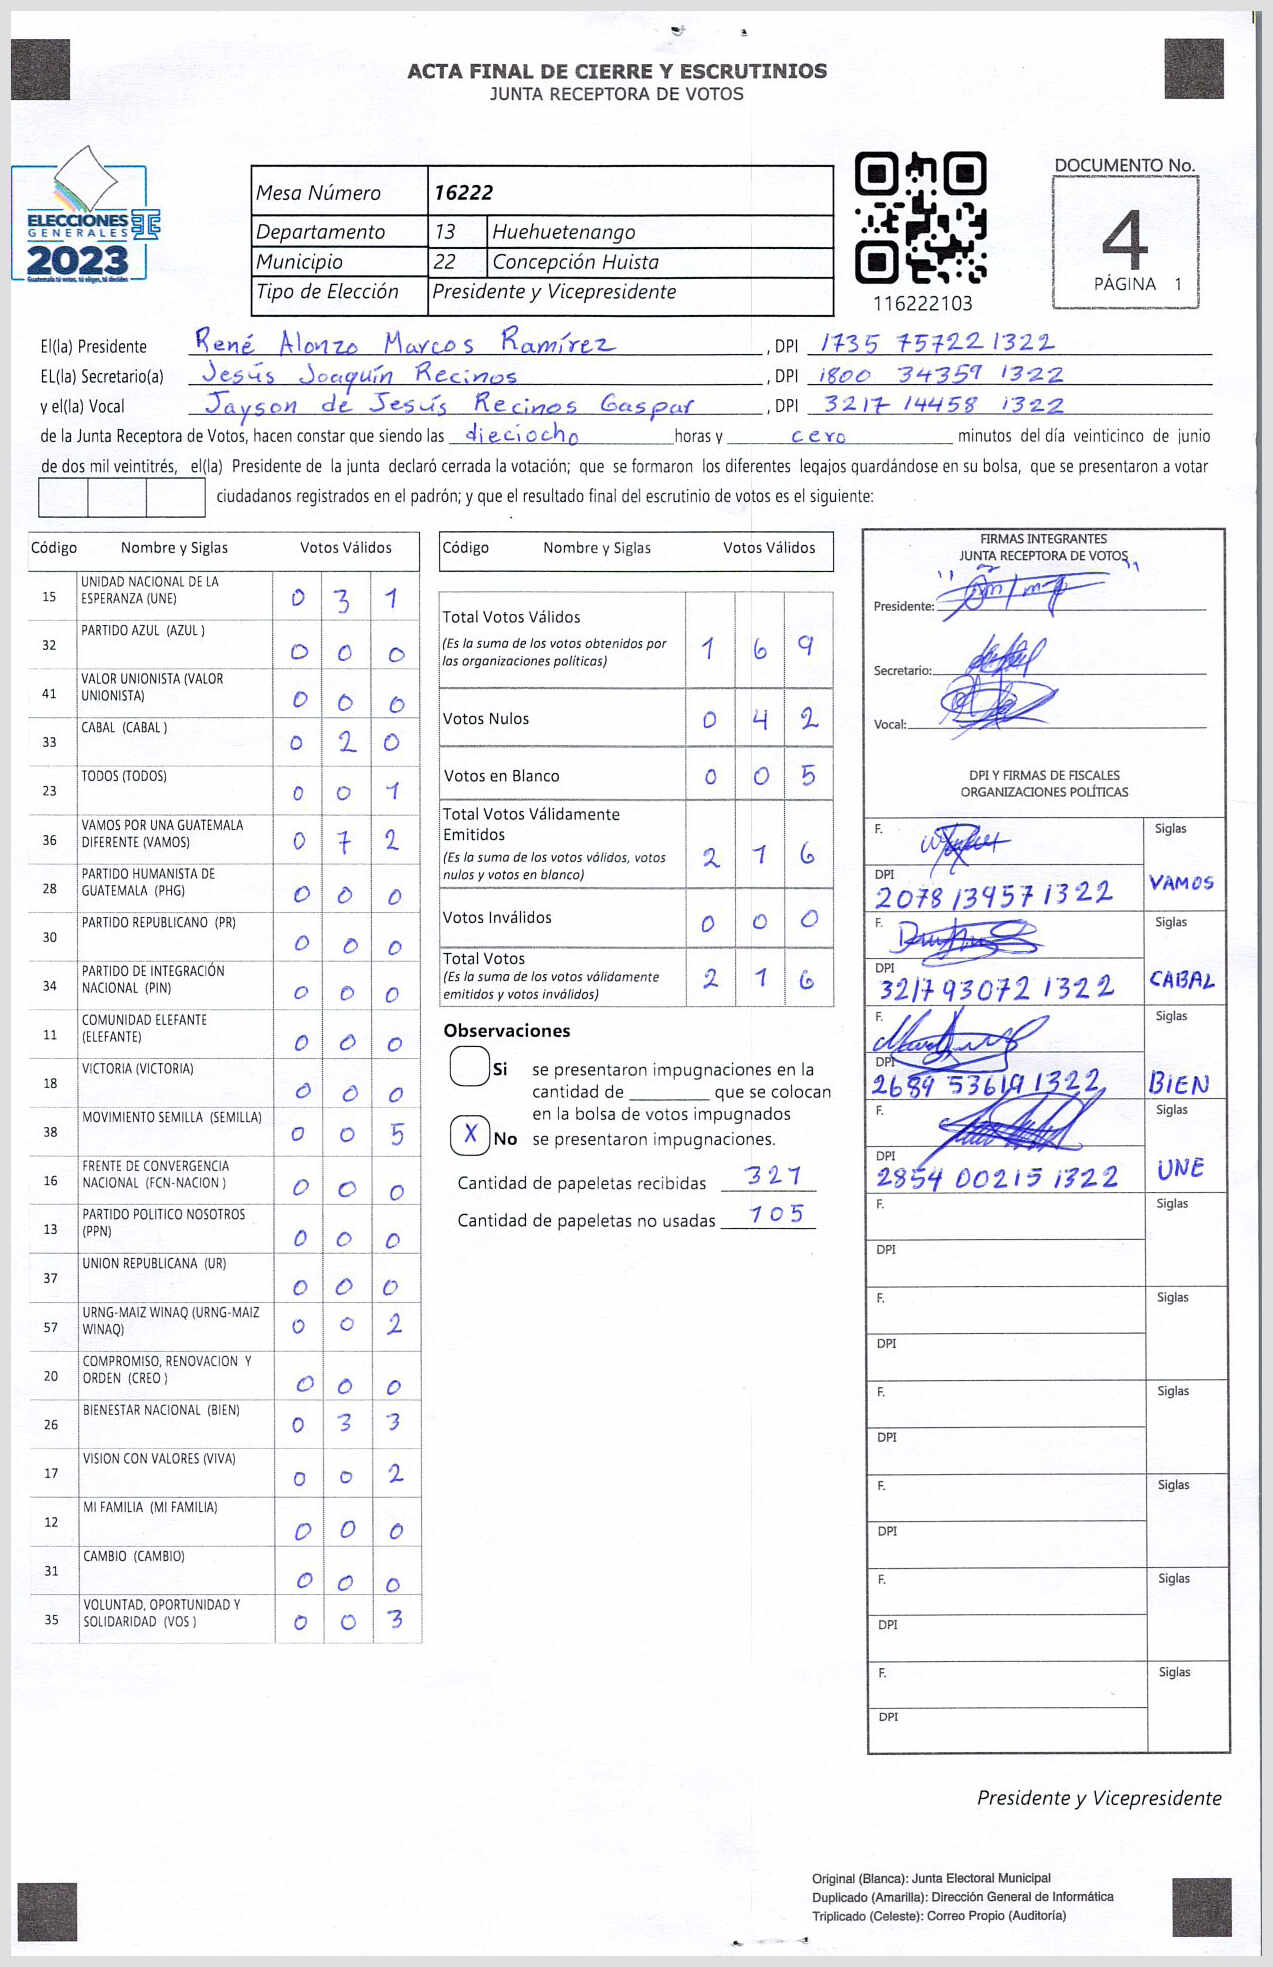 ACTA FINAL DE CIERRE Y ESCRUTINIOS
JUNTA RECEPTORA DE VOTOS
ELECCIONES
GENERALES
2023
Guatemala tú votas, tú eliges, tú decides
Mesa Número 16222
Departamento 13 Huehuetenango
Municipio 22 Concepción Huista
Tipo de Elección Presidente y Vicepresidente
116222103
DOCUMENTO No.
4
PÁGINA 1
El(la) Presidente René Alonzo Marcos Ramírez , DPI 1735 75722 1322
EL(la) Secretario(a) Jesús Joaquín Recinos , DPI 1800 34359 1322
y el(la) Vocal Jayson de Jesús Recinos Gaspar , DPI 3217 14458 1322
de la Junta Receptora de Votos, hacen constar que siendo las dieciocho horas y cero minutos del día veinticinco de junio
de dos mil veintitrés, el(la) Presidente de la junta declaró cerrada la votación; que se formaron los diferentes legajos guardándose en su bolsa, que se presentaron a votar
ciudadanos registrados en el padrón; y que el resultado final del escrutinio de votos es el siguiente:
Código Nombre y Siglas Votos Válidos
15 UNIDAD NACIONAL DE LA
ESPERANZA (UNE) 0 3 1
32 PARTIDO AZUL (AZUL ) 0 0 0
41 VALOR UNIONISTA (VALOR
UNIONISTA) 0 0 0
33 CABAL (CABAL ) 0 2 0
23 TODOS (TODOS) 0 0 1
36 VAMOS POR UNA GUATEMALA
DIFERENTE (VAMOS) 0 7 2
28 PARTIDO HUMANISTA DE
GUATEMALA (PHG) 0 0 0
30 PARTIDO REPUBLICANO (PR) 0 0 0
34 PARTIDO DE INTEGRACIÓN
NACIONAL (PIN) 0 0 0
11 COMUNIDAD ELEFANTE
(ELEFANTE) 0 0 0
18 VICTORIA (VICTORIA) 0 0 0
38 MOVIMIENTO SEMILLA (SEMILLA) 0 0 5
16 FRENTE DE CONVERGENCIA
NACIONAL (FCN-NACION ) 0 0 0
13 PARTIDO POLITICO NOSOTROS
(PPN) 0 0 0
37 UNION REPUBLICANA (UR) 0 0 0
57 URNG-MAIZ WINAQ (URNG-MAIZ
WINAQ) 0 0 2
20 COMPROMISO, RENOVACION Y
ORDEN (CREO ) 0 0 0
26 BIENESTAR NACIONAL (BIEN) 0 3 3
17 VISION CON VALORES (VIVA) 0 0 2
12 MI FAMILIA (MI FAMILIA) 0 0 0
31 CAMBIO (CAMBIO) 0 0 0
35 VOLUNTAD, OPORTUNIDAD Y
SOLIDARIDAD (VOS ) 0 0 3
Código Nombre y Siglas Votos Válidos
Total Votos Válidos
(Es la suma de los votos obtenidos por
las organizaciones políticas) 1 6 9
Votos Nulos 0 4 2
Votos en Blanco 0 0 5
Total Votos Válidamente
Emitidos
(Es la suma de los votos válidos, votos
nulos y votos en blanco) 2 1 6
Votos Inválidos 0 0 0
Total Votos
(Es la suma de los votos válidamente
emitidos y votos inválidos) 2 1 6
Observaciones
Si se presentaron impugnaciones en la
cantidad de ________ que se colocan
en la bolsa de votos impugnados
X No se presentaron impugnaciones.
Cantidad de papeletas recibidas 321
Cantidad de papeletas no usadas 105
FIRMAS INTEGRANTES
JUNTA RECEPTORA DE VOTOS
Presidente:
Secretario:
Vocal:
DPI Y FIRMAS DE FISCALES
ORGANIZACIONES POLÍTICAS
F. Siglas
DPI
2078 13957 1322 VAMOS
F. Siglas
DPI
3217 93072 1322 CABAL
F. Siglas
DPI
2689 53619 1322 BIEN
F. Siglas
DPI
2854 00215 1322 UNE
F. Siglas
DPI
F. Siglas
DPI
F. Siglas
DPI
F. Siglas
DPI
F. Siglas
DPI
F. Siglas
DPI
Presidente y Vicepresidente
Original (Blanca): Junta Electoral Municipal
Duplicado (Amarilla): Dirección General de Informática
Triplicado (Celeste): Correo Propio (Auditoría)